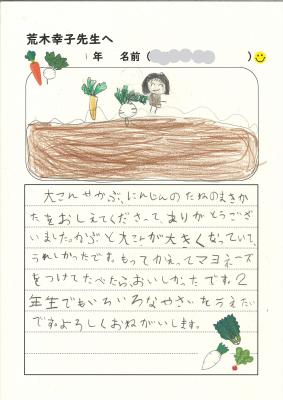 荒木幸子先生へ
年 名前（ ）
大こんやかぶ、にんじんのたねのまきか
たをおしえてくださって、ありがとうござい
ました。かぶと大こんが大きくなっていて、
うれしかったです。もってかえってマヨネーズ
をつけてたべたら、おいしかったです。2
年生でもいろいろなやさいをうえたい
です。よろしくおねがいします。